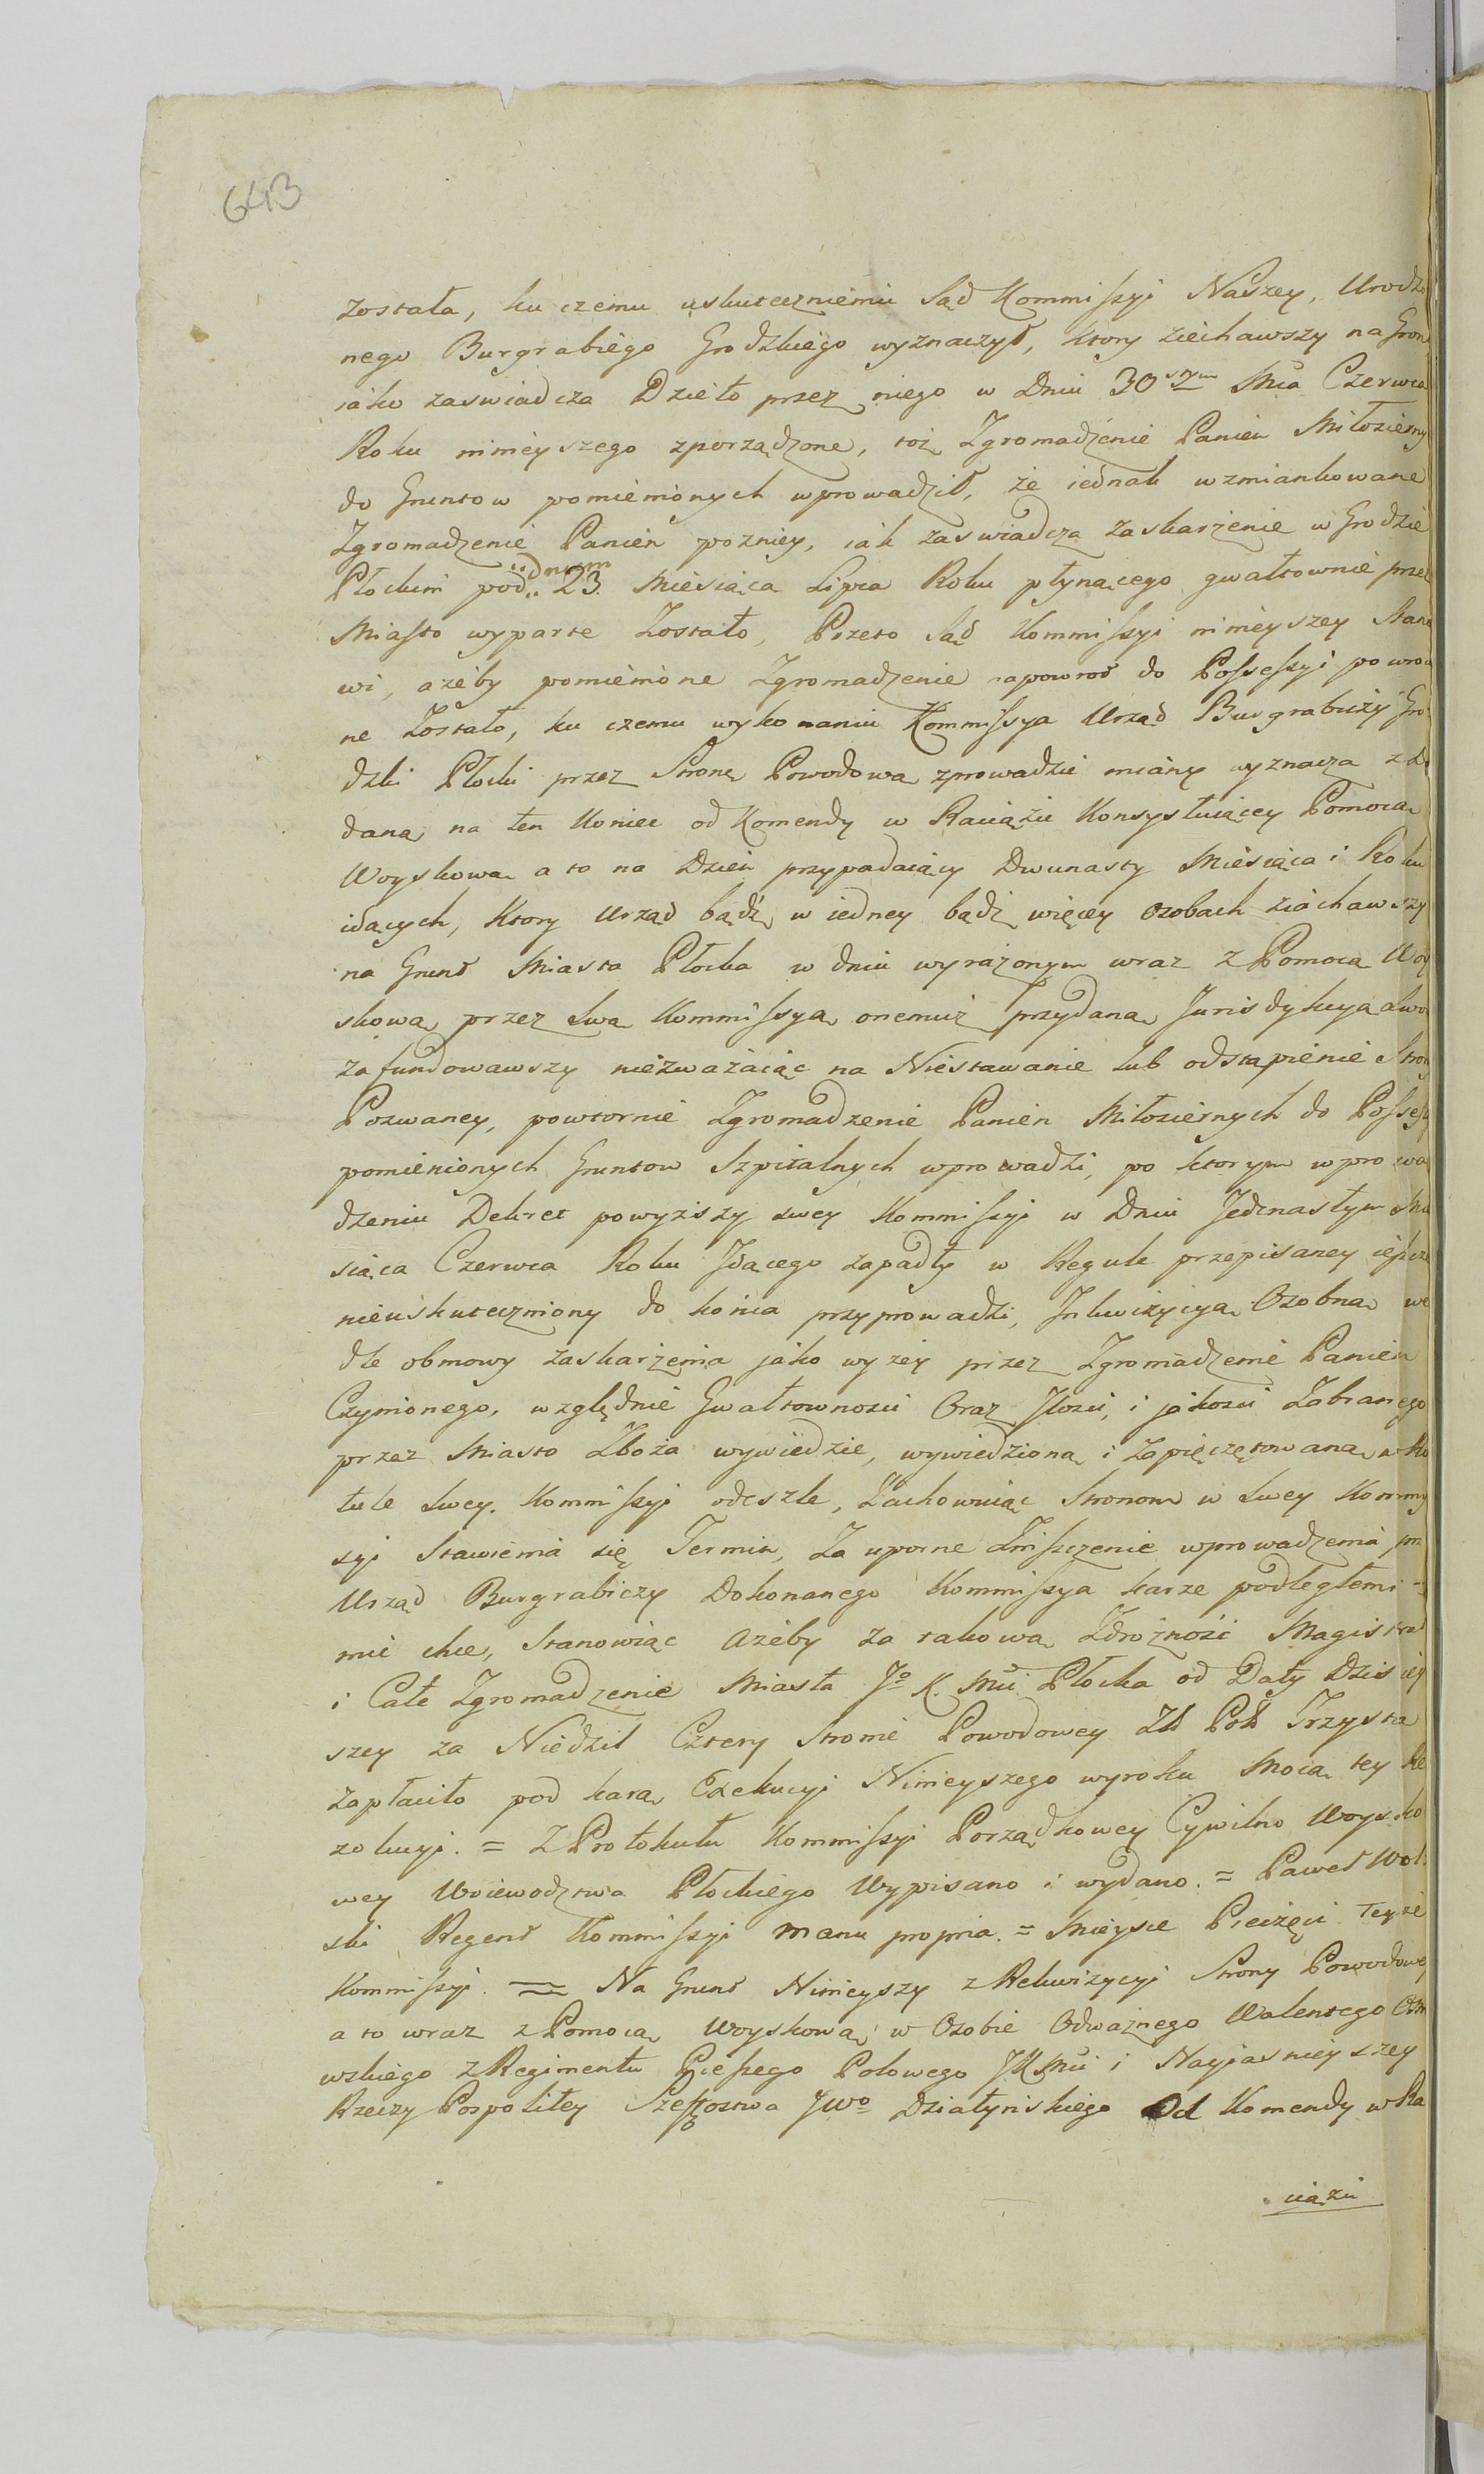 643
została, ku czemu uskutecznieniu Sąd Kommissyi Naszey, Urodzo
nego Burgrabiego Grodzkiego wyznaczył, ktory ziechawszy na Grun
iako zaswiadcza Dzieło przez niego w Dniu 30stym Mca Czerwca
Roku ninieyszego zporządzone, toż Zgromadzenie Panien Miłosierny
do Gruntow pomienionych wprowadził, że iednak wzmiankowane
Zgromadzenie Panien pozniey, iak zaswiadcza zaskarżenie w Grodzie
Płockim pod dniem 23. Miesiąca Lipca Roku płynącego gwałtownie prze
Miasto wyparte Zostało, Przeto Sąd Kommissyi ninieyszey Stano
wi, ażeby pomienione Zgromadzenie napowrot do Possessyi powroco
ne Zostało, ku czemu wykonaniu Kommissya Urząd Burgrabiży Gro
dzki Płocki przez Stronę Powodową zprowadzić miany wyznacza z do
daną na ten Koniec od Komendy w Raciążu Konsystuiącey Pomocą
Woyskową a to na Dzien przypadaiący Dwunasty Miesiąca i Roku
idących, Ktory Urząd bądź w iedney bądź więcey Osobach ziachawszy
na Grunt Miasta Płocka w dniu wyrażonym wraz z Pomocą Woy
skową przez Swą Kommissyą onemuż przydaną Jurisdykcyą Swo
zafundowawszy niezważaiąc na Niestawanie lub odstąpienie Stron
Pozwaney, powtornie Zgromadzenie Panien Miłosiernych do Possessy
pomienionych Gruntow Szpitalnych wprowadzi, po ktorym wprowa
dzeniu Dekret powyższy swey Kommissyi w Dniu Jedenastym Mie
siąca Czerwca Roku Jdącego zapadły w Regule przepisaney ieszcze
nieuskuteczniony do końca przyprowadzi, Jnkwizycyą Osobną we
dle obmowy zaskarżenia jako wyżey przez Zgromadzenie Panien
Czynionego, względnie Gwałtownosci Oraz Jlosci, i jakosci Zabranego
przez Miasto Zboża wywiedzie, wywiedzioną i Zapięczętowaną w Ro
tule Swey Kommissyi odeszle, Zachowuiąc Stronom w Swey Kommis
syi Stawienia się Termin, Za uporne Zniszczenie wprowadzenia prz
Urząd Burgrabiczy Dokonanego Kommissya karze podległemi
mić chce, Stanowiąc Ażeby za takową Zdrożność Magistrat
i Całe Zgromadzenie Miasta Jo K. Mci Płocka od Daty Dzisiey
szey za Niedziel Cztery Stronie Powodowey Zł Pol Trzysta
zapłaciło pod karą Exekucyi Ninieyszego wyroku Mocą tey Re
zolucyi. = Z Protokułu Kommissyi Porządkowey Cywilno Woysko
wey Woiewodztwa Płockiego Wypisano i wydano. = Paweł Wol
ski Regent Kommissyi Manu propria. = Mieysce Pieczęci teyże
Kommissyi. = Na Grunt Ninieyszy z Rekwizycyi Strony Powodowey
a to wraz z Pomocą Woyskową w Osobie Odważnego Walentego
wskiego z Regimentu Pieszego Polowego JK Mci i Nayjasnieyszey
Rzeczy Pospolitey Szeffostwa JWo Działyńskiego Od Komendy w Ra
ciążu